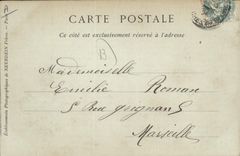 CARTE POSTALE
Ce côté est exclusivement réservé à l'adresse
B
Mademoiselle
Emilie Roman
5 Rue Grignan 5
Marseille
Etablissements Photographiques de NEURDEIN Frères. - Paris